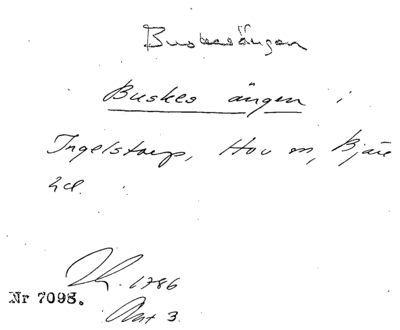 Buskesängen
Buskes ängen i
Ingelstorp, Hov sn, Bjäre
hd.
1786
Nr 7098.
Akt 3.